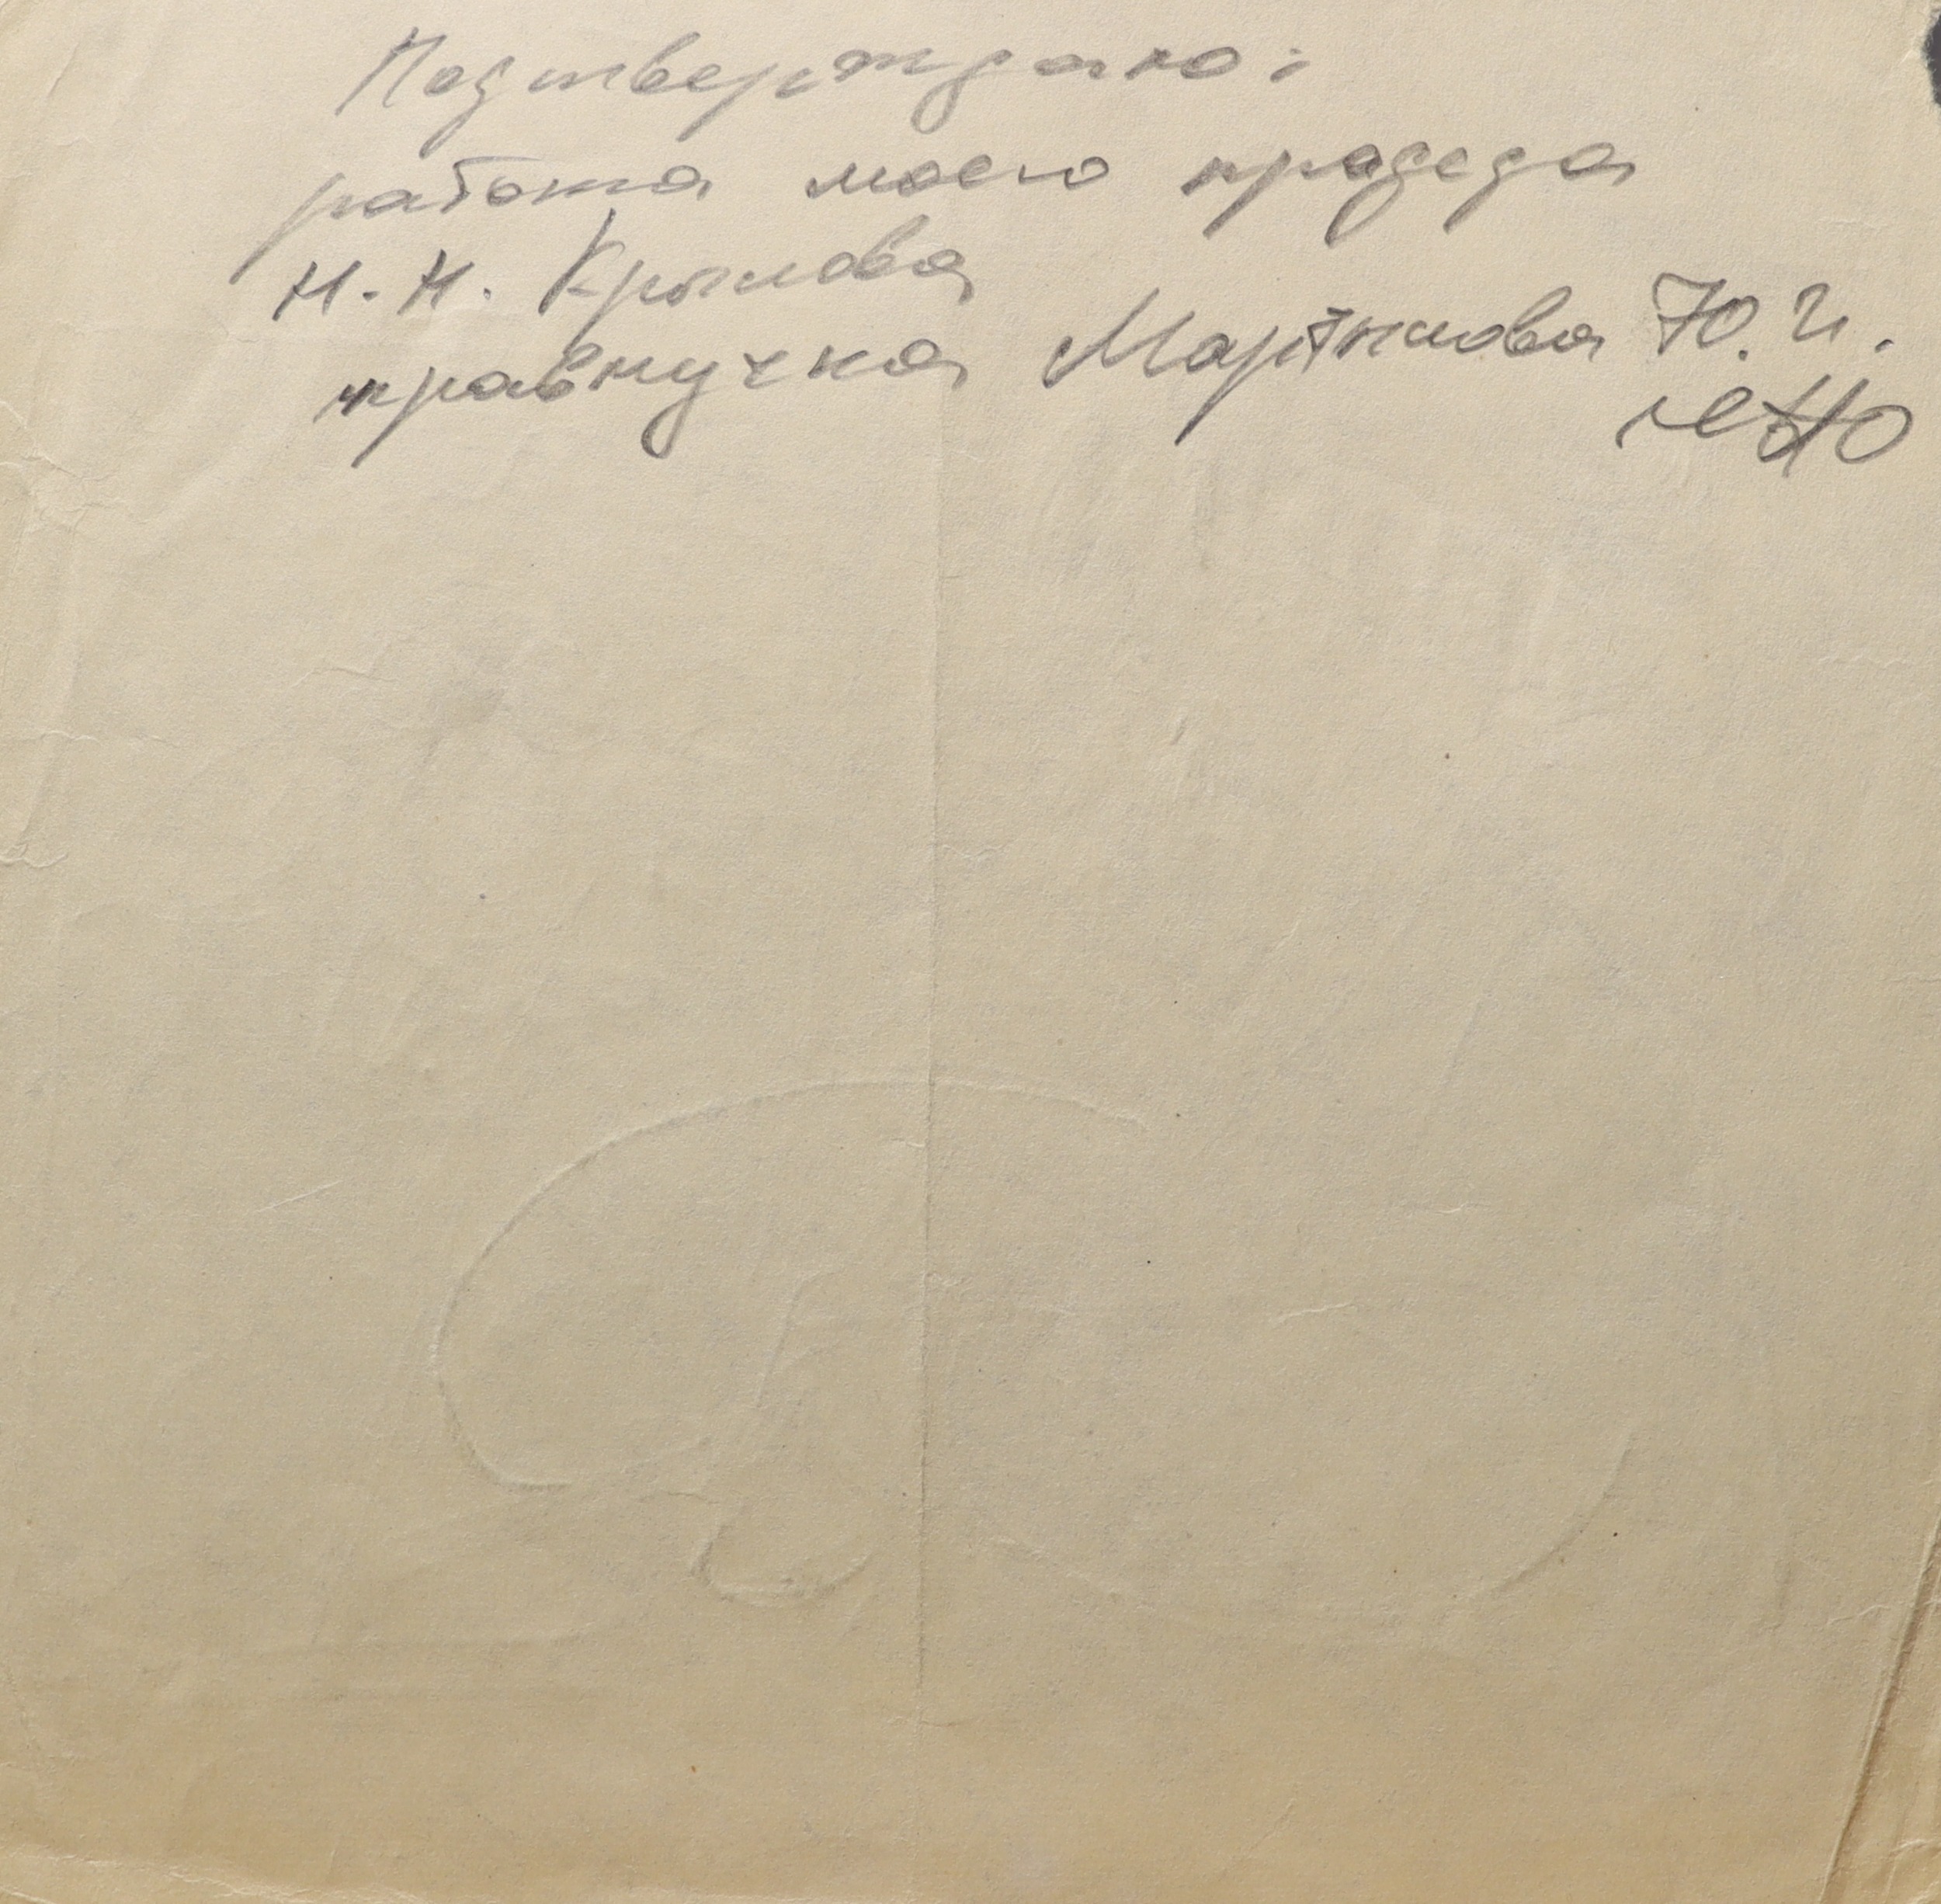 Подтверждаю:
работа моего прадеда
Н. Н. Крылова
правнучка Мартынова Ю. И.